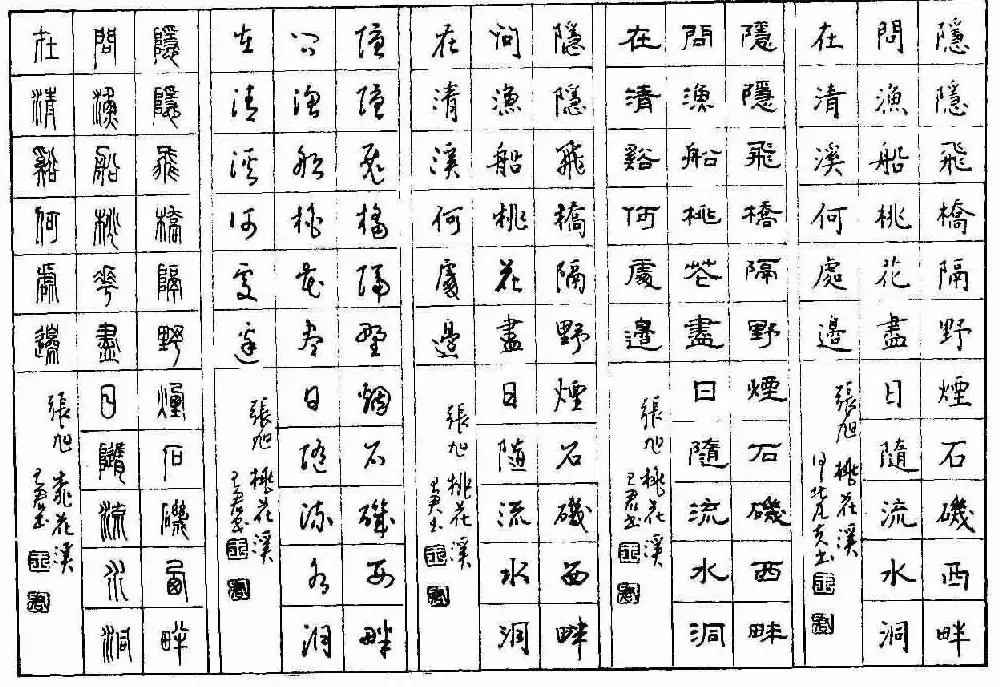 隱隱飛橋隔野煙石磯西畔
問漁船桃花盡日隨流水洞
在清溪何處邊
張旭 桃花溪
隱隱飛橋隔野煙石磯西畔
問漁船桃花盡日隨流水洞
在清谿何處邊
張旭 桃花溪
隱隱飛橋隔野煙石磯西畔
問漁船桃花盡日隨流水洞
在清溪何處邊
張旭 桃花溪
隱隱飛橋隔野煙石磯西畔
問漁船桃花盡日隨流水洞
在清溪何處邊
張旭 桃花溪
隱隱飛橋隔野煙石磯西畔
問漁船桃花盡日隨流水洞
在清谿何處邊
張旭 桃花溪